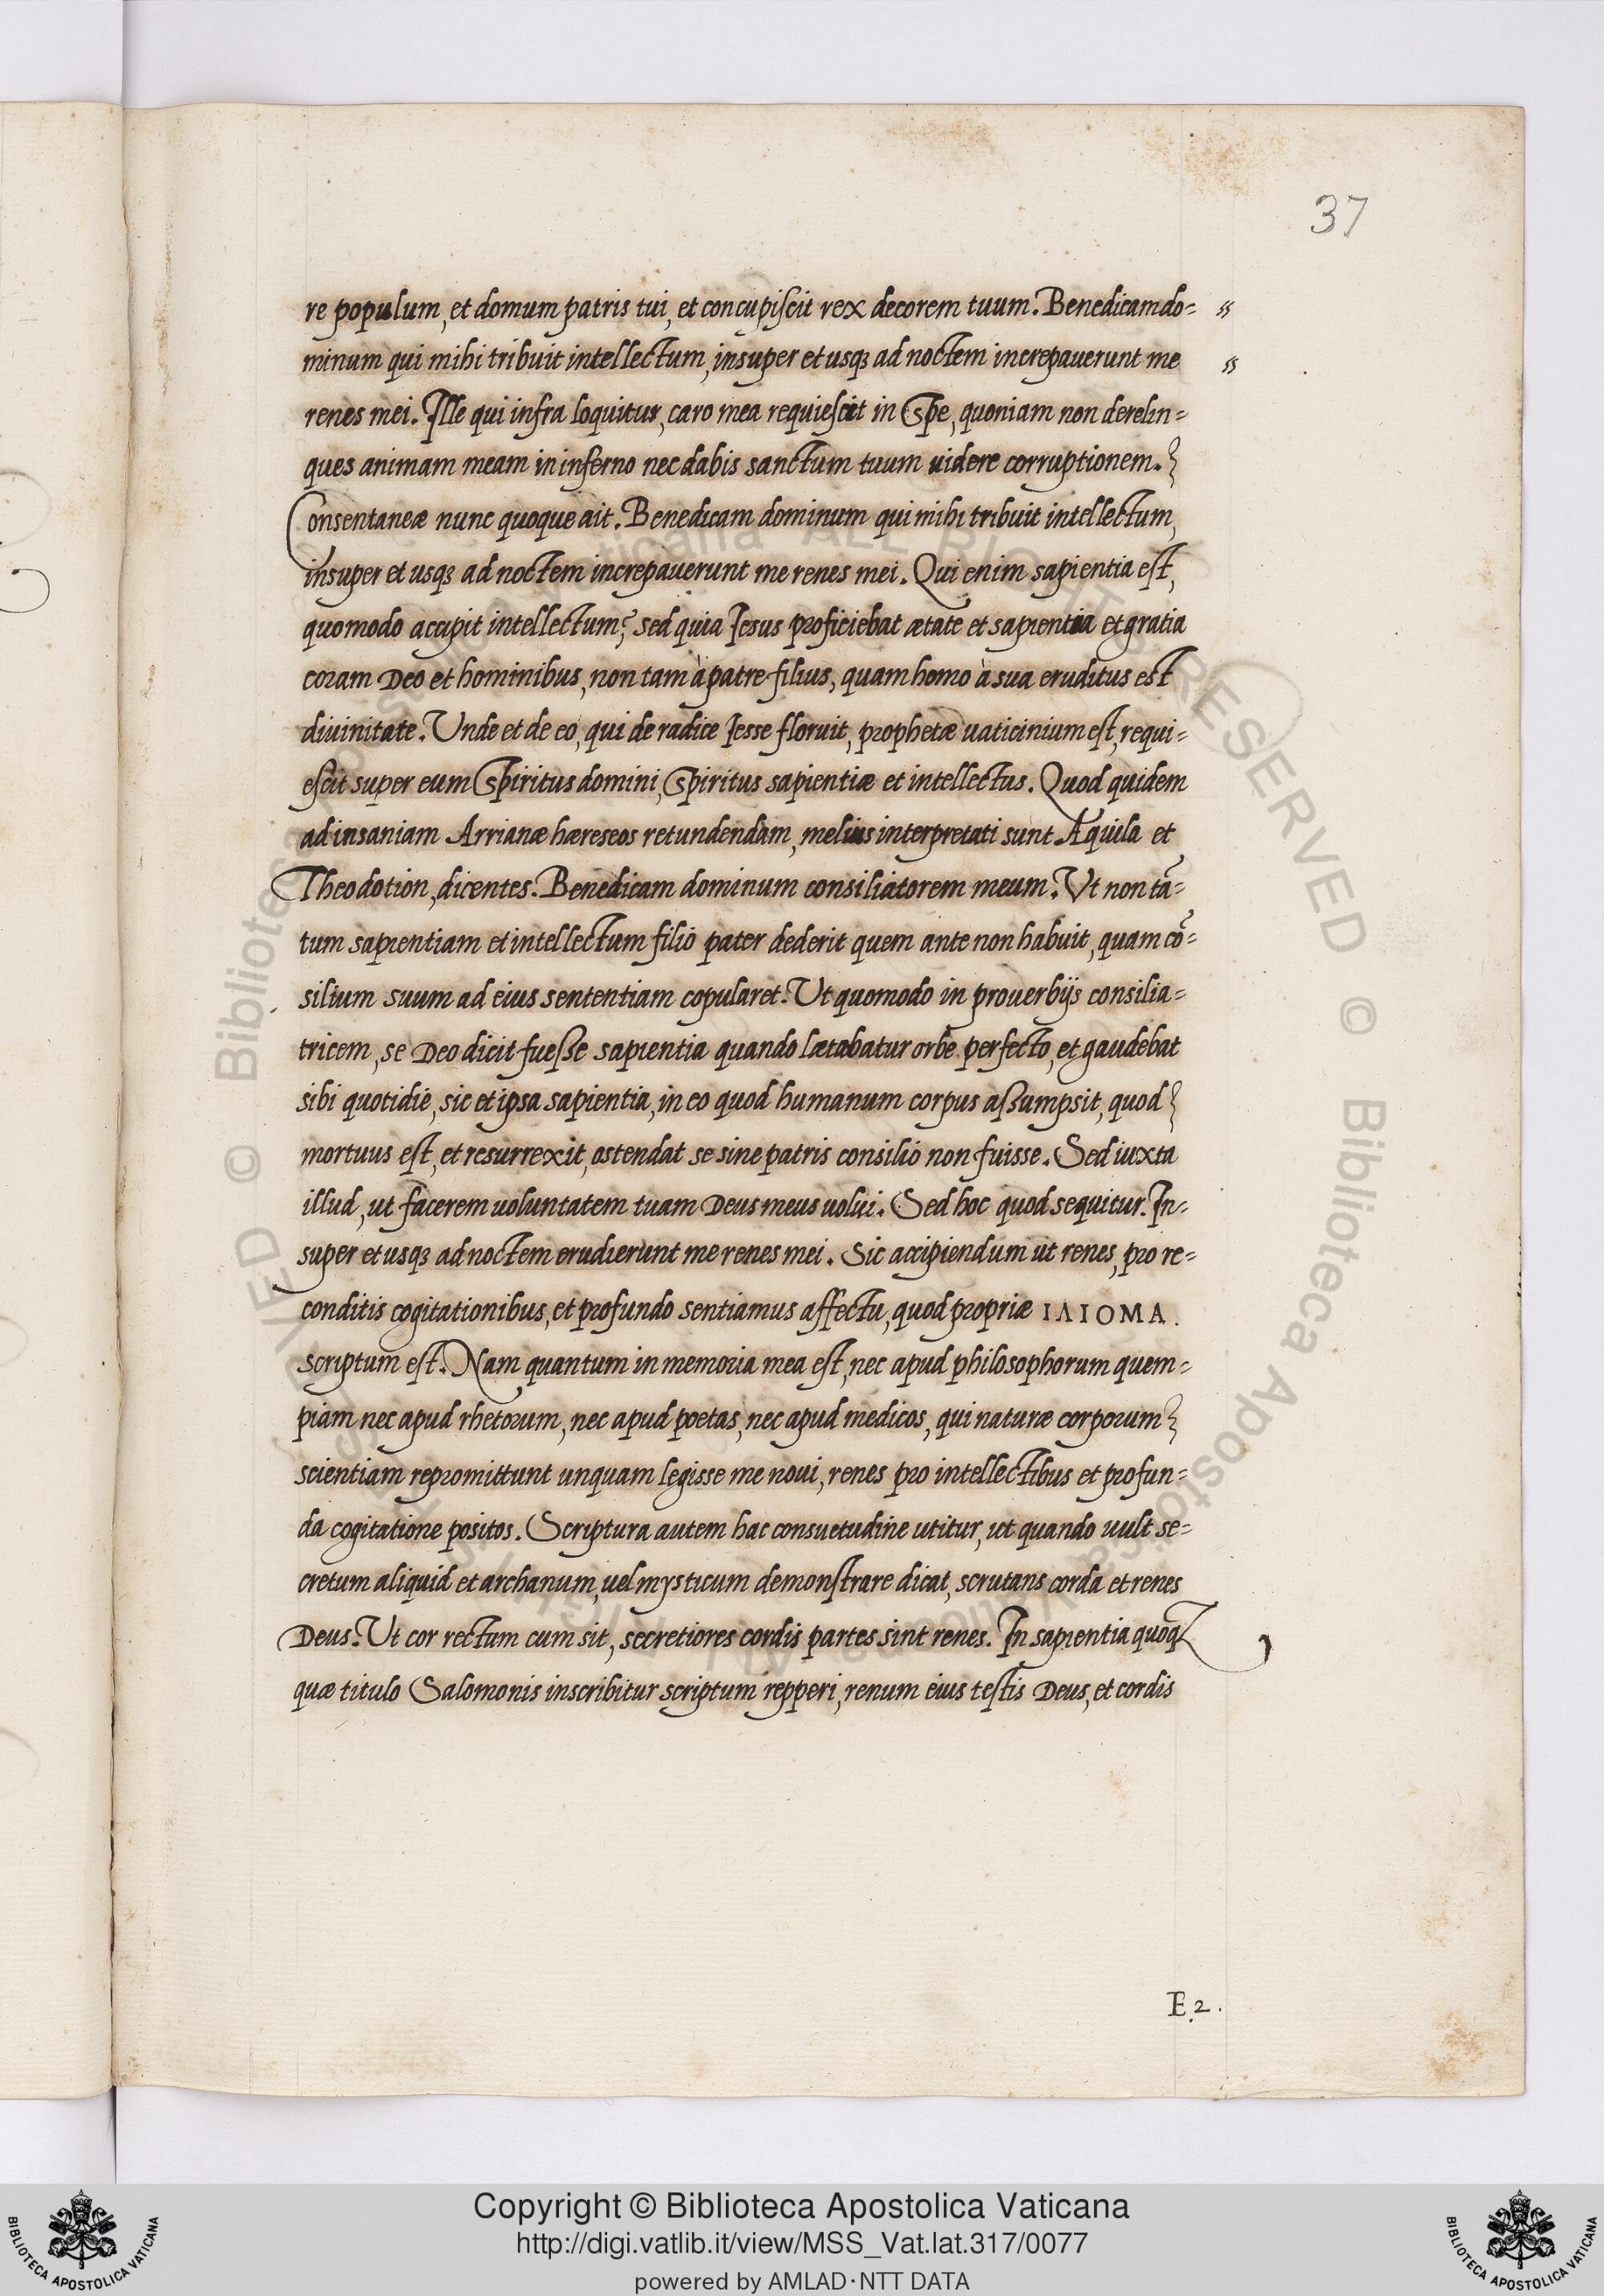 37
re populum, et domum patris tui, et concupiscit rex decorem tuum. Benedicam do= "
minum qui mihi tribuit intellectum, insuper et usqꝫ ad noctem increpauerunt me "
renes mei. Ille qui infra loquitur, caro mea requiescit in spe, quoniam non derelin=
ques animam meam in inferno nec dabis sanctum tuum uidere corruptionem.
Consentaneæ nunc quoque ait. Benedicam dominum qui mihi tribuit intellectum,
insuper et usqꝫ ad noctem increpauerunt me renes mei. Qui enim sapientia est,
quomodo accipit intellectum? sed quia Iesus proficiebat ætate et sapientia et gratia
coram Deo et hominibus, non tam à patre filius, quam homo à sua eruditus est
diuinitate. Unde et de eo, qui de radice Iesse floruit, prophetæ uaticinium est, requi=
escit super eum spiritus domini, spiritus sapientiæ et intellectus. Quod quidem
ad insaniam Arrianæ hæreseos retundendam, melius interpretati sunt Aquila et
Theodotion, dicentes. Benedicam dominum consiliatorem meum. Vt non tā=
tum sapientiam et intellectum filio pater dederit quem ante non habuit, quam cō=
silium suum ad eius sententiam copularet. Ut quomodo in prouerbijs consilia=
tricem, se Deo dicit fueße sapientia quando lætabatur orbe perfecto, et gaudebat
sibi quotidie, sic et ipsa sapientia, in eo quod humanum corpus aßumpsit, quod
mortuus est, et resurrexit, ostendat se sine patris consilio non fuisse. Sed iuxta
illud, ut facerem uoluntatem tuam Deus meus uolui. Sed hoc quod sequitur. In=
super et usqꝫ ad noctem erudierunt me renes mei. Sic accipiendum ut renes, pro re=
conditis cogitationibus, et profundo sentiamus affectu, quod propriæ ΙΔΙΟΜΑ.
scriptum est. Nam quantum in memoria mea est, nec apud philosophorum quem=
piam nec apud rhetorum, nec apud poetas, nec apud medicos, qui naturæ corporum
scientiam repromittunt unquam legisse me noui, renes pro intellectibus et profun=
da cogitatione positos. Scriptura autem hac consuetudine utitur, ut quando uult se=
cretum aliquid et archanum, uel mysticum demonstrare dicat, scrutans corda et renes
Deus. Ut cor rectum cum sit, secretiores cordis partes sint renes. In sapientia quoqꝫ
quæ titulo Salomonis inscribitur scriptum repperi, renum eius testis Deus, et cordis
E.2.
Copyright © Biblioteca Apostolica Vaticana
http://digi.vatlib.it/view/MSS_Vat.lat.317/0077
powered by AMLAD·NTT DATA
BIBLIOTECA APOSTOLICA VATICANA
BIBLIOTECA APOSTOLICA VATICANA